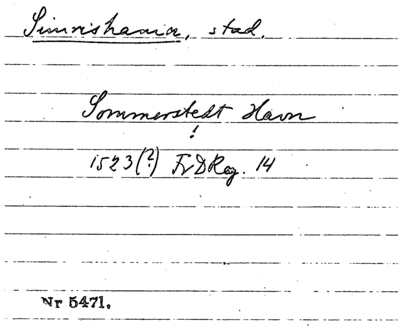 Simrishamn, stad.
Sommerstedt Havn
!
1523(?) Fr D Reg. 14
Nr 5471.